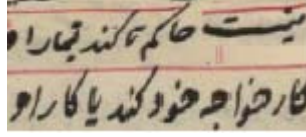 نیست حاکم تا کند تیمار او
کار خواجه خود کند یا کار او